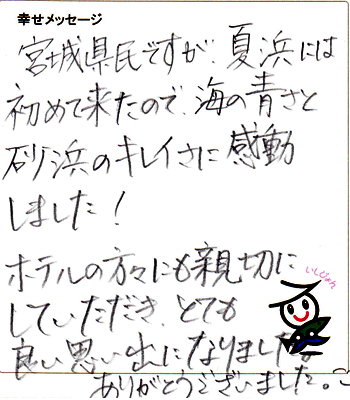 幸せメッセージ
宮城県民ですが、夏浜には
初めて来たので、海の青さと
砂浜のキレイさに感動
しました！
ホテルの方々にも親切に
していただき、とても
良い思い出になりました。
ありがとうございました。